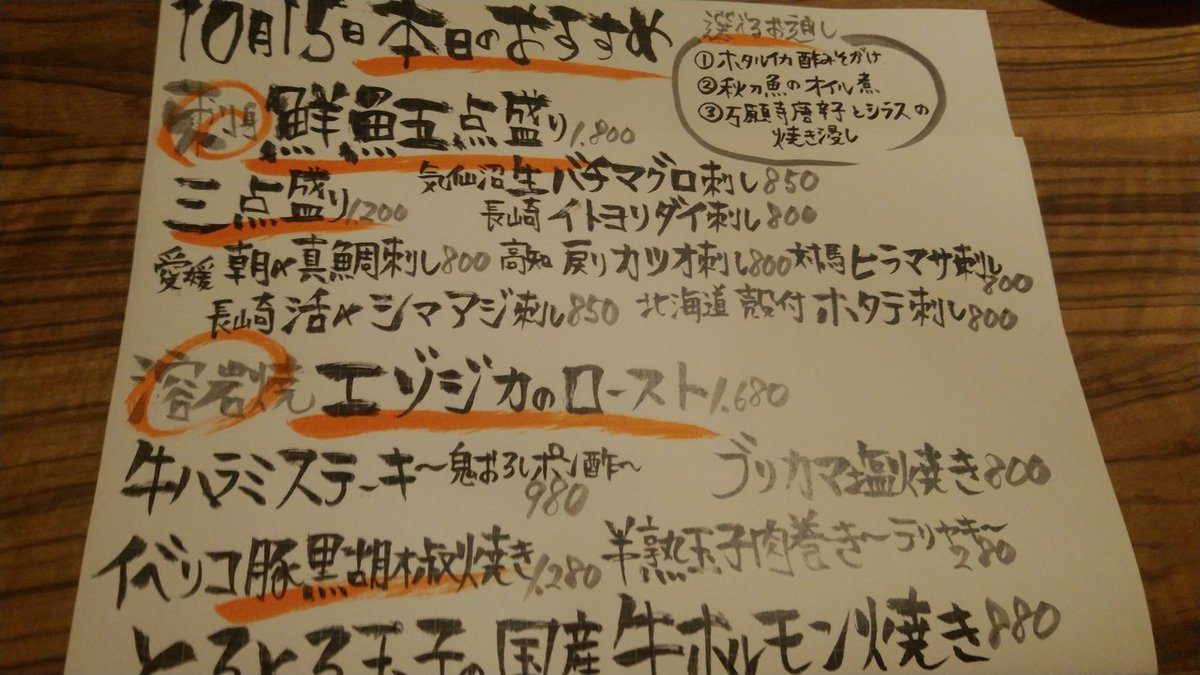 10月15日 本日のおすすめ
選べるお通し
①ホタルイカ酢みそがけ
②秋刀魚のオイル煮
③万願寺唐辛子とシラスの
焼き浸し
刺身 鮮魚五点盛り 1.800
三点盛り 1200
気仙沼 生バチマグロ刺し 850
長崎 イトヨリダイ刺し 800
愛媛 朝〆真鯛刺し 800 高知 戻りカツオ刺し 800 対馬 ヒラマサ刺し 800
長崎 活〆シマアジ刺し 850 北海道 殻付ホタテ刺し 800
溶岩焼 エゾジカのロースト 1.680
牛ハラミステーキ〜鬼おろしポン酢〜 980
ブリカマ塩焼き 800
イベリコ豚黒胡椒焼き 1.280
半熟玉子肉巻き〜テリヤキ〜 280
とろとろ玉子の国産牛ホルモン焼き 880